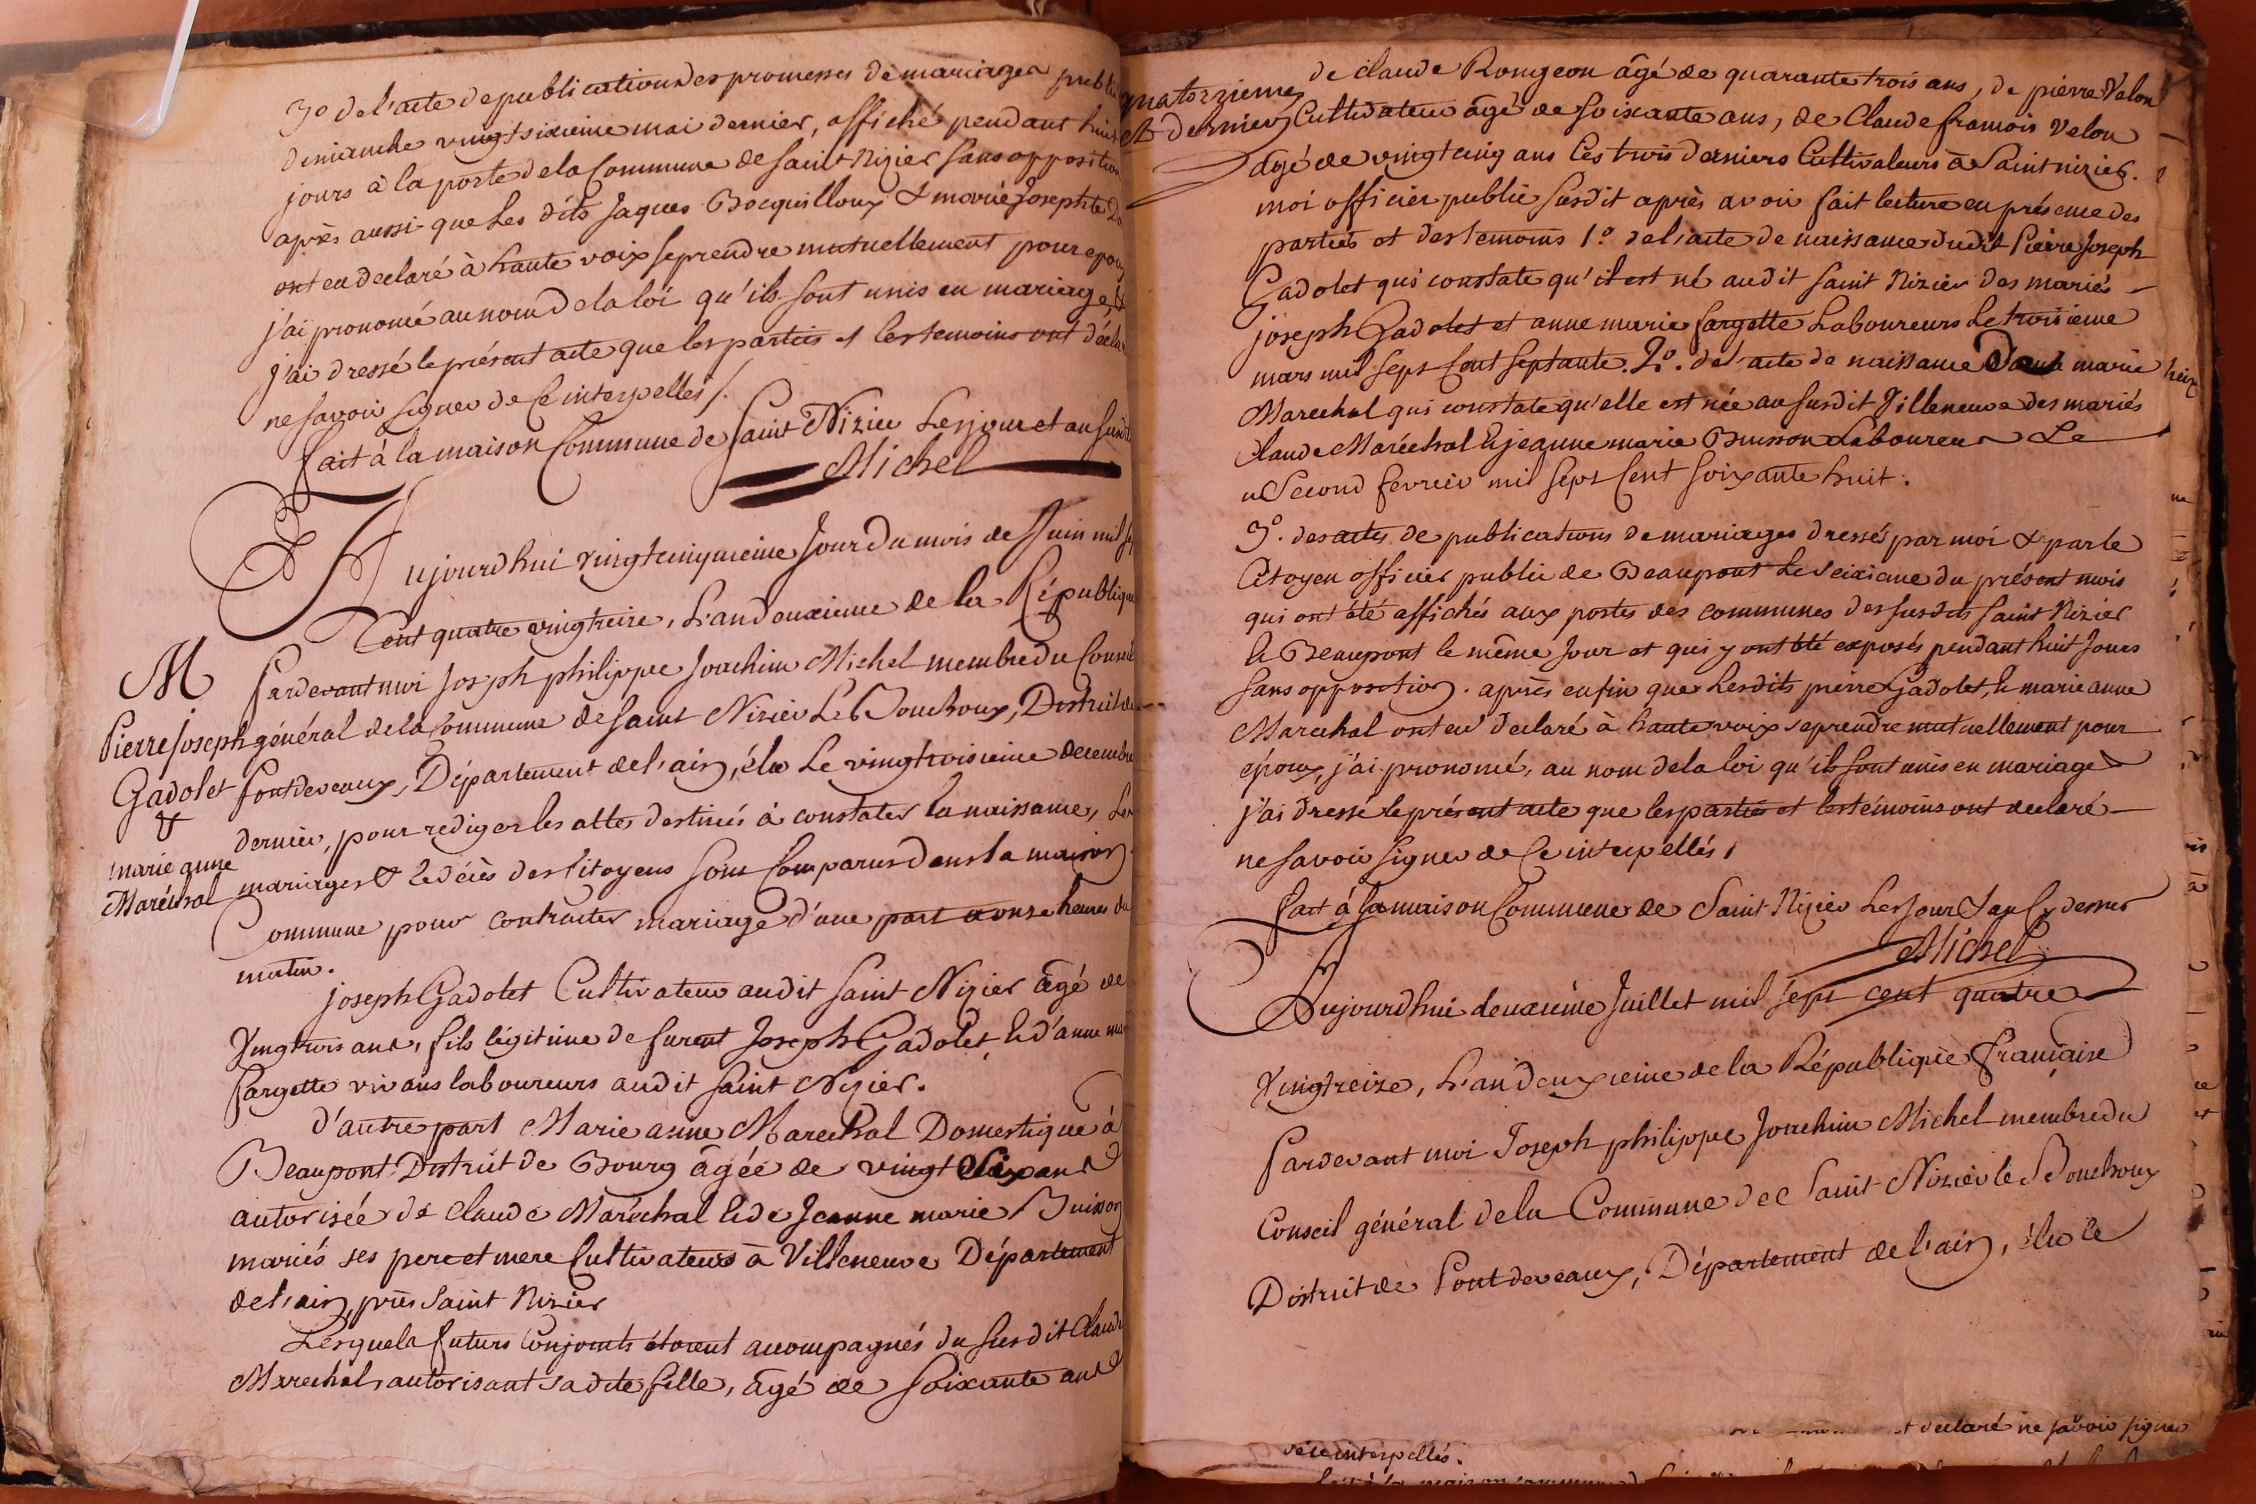 3º de l'acte de publication des promesses de mariages publié
dimanche vingtsixieme mai dernier, affiché pendant huit
jours à la porte de la Commune de Saint Nizier sans opposition
après aussi que les dits Jaques Bocquilloux & marie Josephte
ont eu declaré à haute voix se prendre mutuellement pour epoux
j'ai prononcé au nom de la loi qu'ils sont unis en mariage, &
j'ai dressé le présent acte que les parties et les temoins ont décla
ne savoir signer de ce interpellés /.
fait à la maison Commune de Saint Nizier Les jour et an susdit
Michel
Aujourdhui vingtcinquieme Jour du mois de Juin mil sep
Cent quatre vingtreize, L'an deuxieme de la République
M
Pardevant moi Joseph philippe Joachim Michel membre du Conseil
Pierre Joseph
général de la Commune de Saint Nizier Le Bouchoux, District de
Gadolet
Pontdevaux, Département de l'ain, élu Le vingtroisieme decembre
&
dernier, pour rediger les attes destinés à constater la naissance, Les
marie anne
mariages & le décès des Citoyens sont Comparus dans la maison
Maréchal
Commune pour contracter mariage d'une part a onze heures du
matin.
joseph Gadolet Cultivateur audit Saint Nizier âgé de
Vingtrois ans, fils légitime de furent Joseph Gadolet, & d'anne ma
fargette vivans laboureurs audit Saint Nizier.
d'autre part Marie anne Marechal Domestique à
Beaupont District de Bourg âgée de vingt Six ans
autorisée de Claude Maréchal & de Jeanne marie Buisson
mariés ses pere et mere Cultivateurs à Villeneuve Département
de l'ain, près Saint Nizier
Lesquels futurs Conjoints étoient accompagnés du susdit Claude
Marechal, autorisant sa dite fille, âgé de soixante ans
quatorzieme
& dernier
de claude Rongeon âgé de quarante trois ans, de pierre Velon
Cultivateur âgé de soixante ans, de Claude francois Velon
âgé de vingt cinq ans Ces trois derniers Cultivateurs à Saint nizier.
moi officier public susdit après avoir fait lecture en présence des
parties et des temoins 1º. de l'acte de naissance dudit Pierre Joseph
Gadolet qui constate qu'il est né audit Saint Nizier des mariés
joseph Gadolet et anne marie fargette Laboureurs Le troisieme
mars mil Sept Cent Septante. 2º. de l'acte de naissance marie
Marechal qui constate qu'elle est née au susdit Villeneuve des mariés
Claude Maréchal & jeanne marie Buisson Laboureur Le
Second fevrier mil Sept Cent soixante huit.
3º. des actes de publications de mariages dressés par moi & par le
Citoyen officier public de Beaupont Le Seixieme du présent mois
qui ont été affichés aux portes des communes des susdits Saint Nizier
& Beaupont le même Jour et qui y ont été exposés pendant huit Jours
Sans opposition. après enfin que Lesdits pierre Gadolet, & marie anne
Marechal ont eu declaré à haute voix se prendre mutuellement pour
époux, j'ai prononcé, au nom de la loi qu'ils sont unis en mariage
j'ai dressé le présent acte que les parties et les témoins ont declaré
ne savoir signer de Ce interpellés,
fait à la maison Commune de Saint Nizier Les Jour & an Cy dessus
Michel
Aujourdhui deuxieme Juillet mil sept cent quatre
Vingtreize, L'an deuxieme de la République française
Pardevant moi Joseph philippe Joachim Michel membre du
Conseil général de la Commune de Saint Nizier le Bouchoux
District de Pontdevaux, Département de l'ain, élu le
declaré ne savoir signer
de ce interpellés.